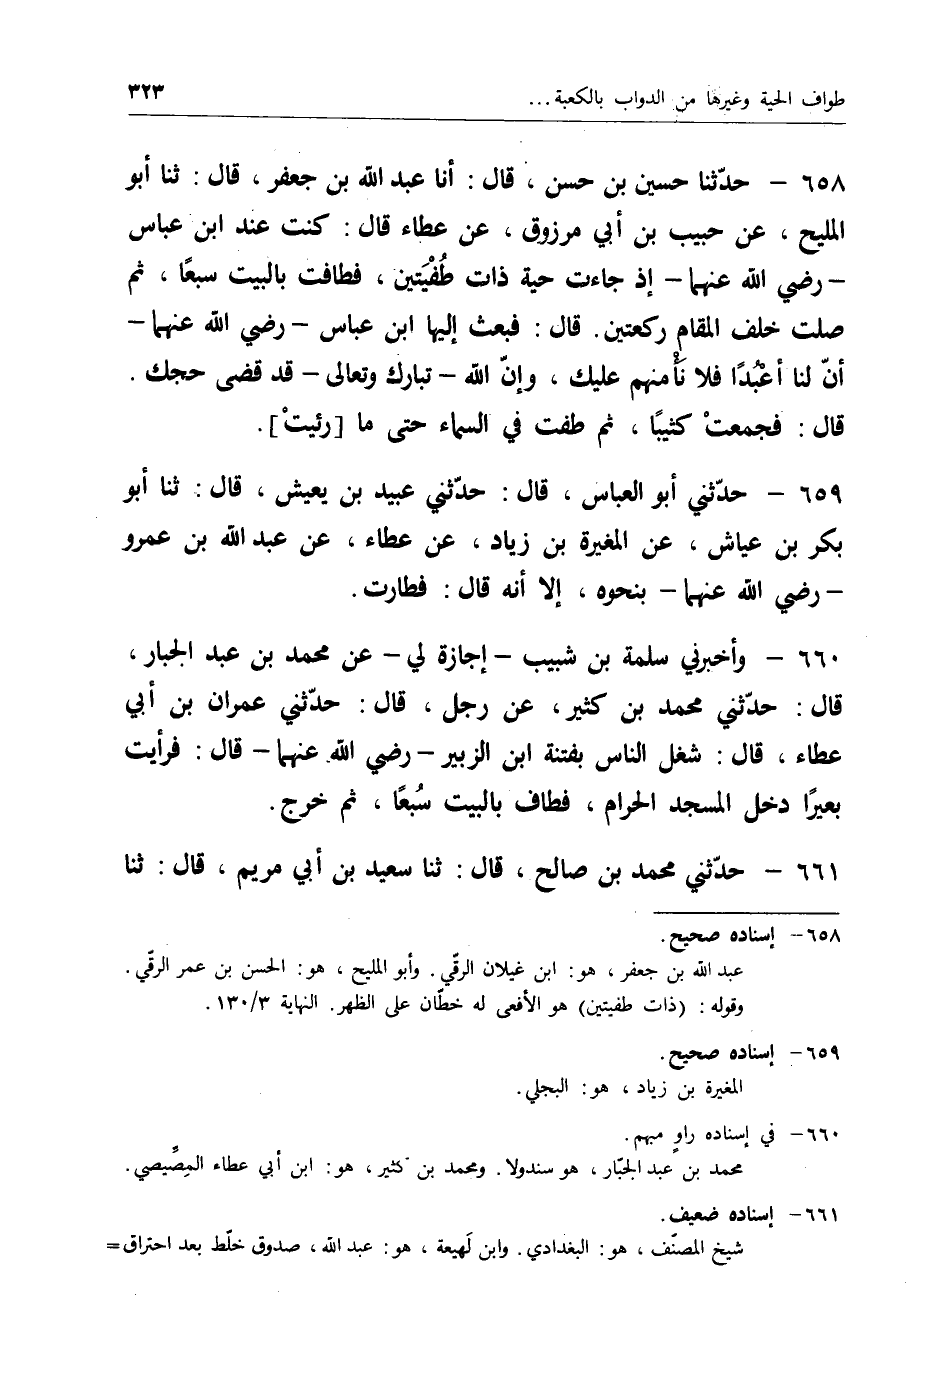 طواف الحية وغيرها من الدواب بالكعبة ... ٣٢٣
٦٥٨ – حدّثنا حسين بن حسن ، قال : أنا عبد الله بن جعفر ، قال : ثنا أبو
المليح ، عن حبيب بن أبي مرزوق ، عن عطاء قال : كنت عند ابن عباس
– رضي الله عنهما – إذ جاءت حية ذات طُفْيَتين ، فطافت بالبيت سبعًا ، ثم
صلت خلف المقام ركعتين. قال : فبعث إليها ابن عباس – رضي الله عنهما –
أنّ لنا أعْبُدًا فلا نَأْمنهم عليك ، وإنّ الله – تبارك وتعالى – قد قضى حجك .
قال : فجمعتْ كثيبًا ، ثم طفت في السماء حتى ما [رئيتْ].
٦٥٩ – حدّثني أبو العباس ، قال : حدّثني عبيد بن يعيش ، قال : ثنا أبو
بكر بن عياش ، عن المغيرة بن زياد ، عن عطاء ، عن عبد الله بن عمرو
– رضي الله عنهما – بنحوه ، إلا أنه قال : فطارت.
٦٦٠ – وأخبرني سلمة بن شبيب – إجازة لي – عن محمد بن عبد الجبار ،
قال : حدّثني محمد بن كثير ، عن رجل ، قال : حدّثني عمران بن أبي
عطاء ، قال : شغل الناس بفتنة ابن الزبير – رضي الله عنهما – قال : فرأيت
بعيرًا دخل المسجد الحرام ، فطاف بالبيت سُبعًا ، ثم خرج.
٦٦١ – حدّثني محمد بن صالح ، قال : ثنا سعيد بن أبي مريم ، قال : ثنا
٦٥٨– إسناده صحيح.
عبد الله بن جعفر ، هو : ابن غيلان الرقّي. وأبو المليح ، هو : الحسن بن عمر الرقّي.
وقوله : (ذات طفيتين) هو الأفعى له خطّان على الظهر. النهاية ١٣٠/٣ .
٦٥٩– إسناده صحيح.
المغيرة بن زياد ، هو : البجلي.
٦٦٠– في إسناده راوٍ مبهم.
محمد بن عبد الجبّار ، هو سندولا. ومحمد بن كثير ، هو : ابن أبي عطاء المِصّيصي.
٦٦١– إسناده ضعيف.
شيخ المصنّف ، هو : البغدادي. وابن لَهيعة ، هو : عبد الله ، صدوق خلّط بعد احتراق=